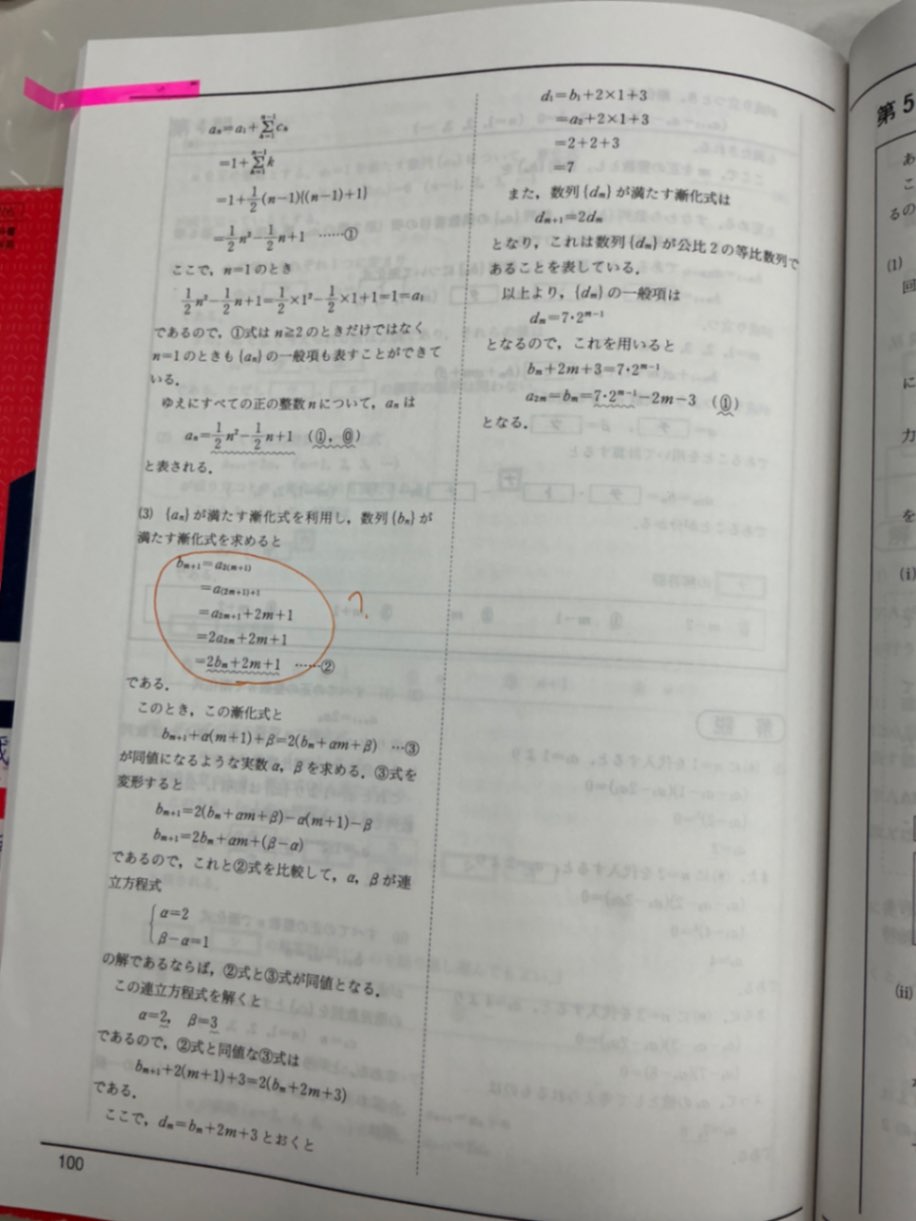 aₙ=a₁+∑[k=1, n−1]cₖ
=1+∑[k=1, n−1]k
=1+1/2(n−1){(n−1)+1}
=1/2n²−1/2n+1 ……①
ここで，n=1のとき
1/2n²−1/2n+1=1/2×1²−1/2×1+1=1=a₁
であるので，①式はn≧2のときだけではなく
n=1のときも{aₙ}の一般項も表すことができて
いる．
ゆえにすべての正の整数nについて，aₙは
aₙ=1/2n²−1/2n+1 (①，⓪)
と表される．
(3) {aₙ}が満たす漸化式を利用し，数列{bₙ}が
満たす漸化式を求めると
bₘ₊₁=a₂₍ₘ₊₁₎
=a₍₂ₘ₊₁₎₊₁
=a₂ₘ₊₁+2m+1
=2a₂ₘ+2m+1
=2bₘ+2m+1 ……②
?
である．
このとき，この漸化式と
bₘ₊₁+α(m+1)+β=2(bₘ+αm+β) …③
が同値になるような実数α，βを求める．③式を
変形すると
bₘ₊₁=2(bₘ+αm+β)−α(m+1)−β
bₘ₊₁=2bₘ+αm+(β−α)
であるので，これと②式を比較して，α，βが連
立方程式
{α=2
β−α=1
の解であるならば，②式と③式が同値となる．
この連立方程式を解くと
α=2，β=3
であるので，②式と同値な③式は
bₘ₊₁+2(m+1)+3=2(bₘ+2m+3)
である．
ここで，dₘ=bₘ+2m+3とおくと
100
d₁=b₁+2×1+3
=a₂+2×1+3
=2+2+3
=7
また，数列{dₘ}が満たす漸化式は
dₘ₊₁=2dₘ
となり，これは数列{dₘ}が公比2の等比数列で
あることを表している．
以上より，{dₘ}の一般項は
dₘ=7・2ᵐ⁻¹
となるので，これを用いると
bₘ+2m+3=7・2ᵐ⁻¹
a₂ₘ=bₘ=7・2ᵐ⁻¹−2m−3 (①)
となる．
第5
あ
こ
るの
(1)
回
に
力
を
(i)
(ii)